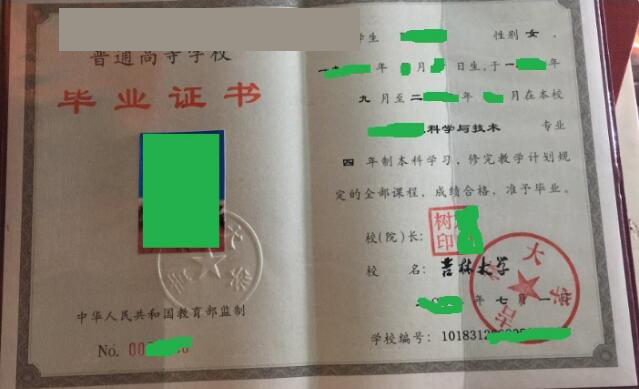 普通高等学校
毕业证书
中华人民共和国教育部监制
No. 00
学生 性别 女，
一 年 月 日生，于一 年
九月至二 年 月在本校
科学与技术 专业
四年制本科学习，修完教学计划规
定的全部课程，成绩合格，准予毕业。
校(院)长：
树
印
校 名：吉林大学
年 七 月 一
学校编号：1018312
吉林大学